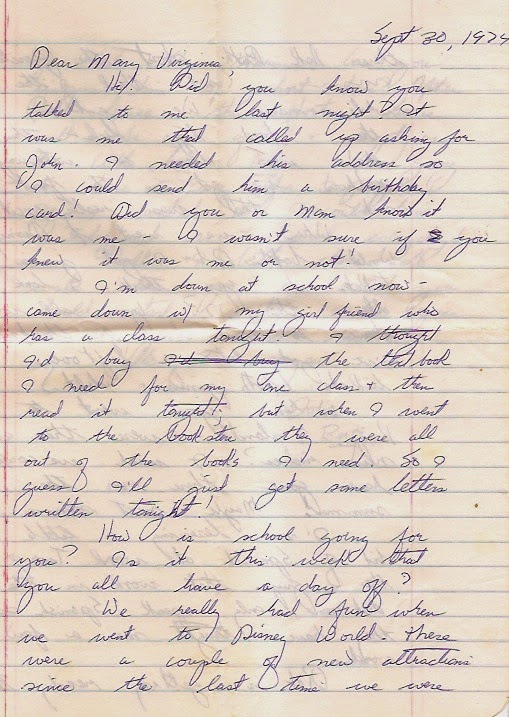 Sept 30, 1974
Dear Mary Virginia,
Hi! Did you know you
talked to me last night? It
was me that called up asking for
John. I needed his address so
I could send him a birthday
card! Did you or Mom know it
was me - I wasn't sure if you
knew it was me or not!
I'm down at school now -
came down w/ my girl friend who
has a class tonight. I thought
I'd buy the textbook
I need for my one class + then
read it tonight; but when I went
to the bookstore they were all
out of the books I need. So I
guess I'll just get some letters
written tonight!
How is school going for
you? Is it this week that
you all have a day off?
We really had fun when
we went to Disney World. There
were a couple of new attractions
since the last time we were